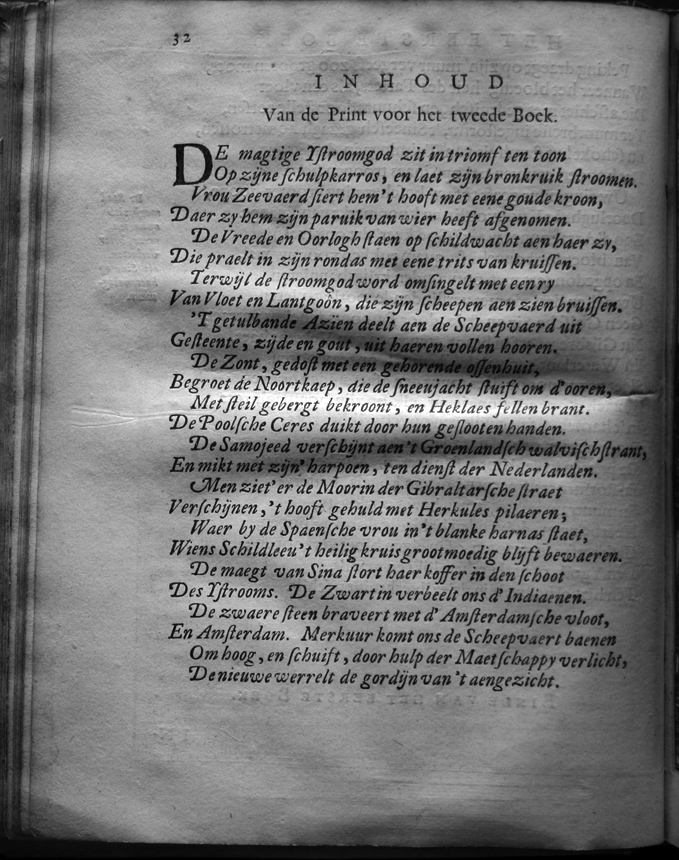 32
INHOUD
Van de Print voor het tweede Boek.
DE magtige Yſtroomgod zit in triomf ten toon
Op zijne ſchulpkarros, en laet zijn bronkruik ſtroomen.
Vrou Zeevaerd ſiert hem't hooft met eene goude kroon,
Daer zy hem zijn paruik van wier heeft afgenomen.
De Vreede en Oorlogh ſtaen op ſchildwacht aen haer zy,
Die praelt in zijn rondas met eene trits van kruiſſen.
Terwijl de ſtroomgod word omſingelt met een ry
Van Vloet en Lantgoôn, die zijn ſcheepen aen zien bruiſſen.
'T getulbande Aziën deelt aen de Scheepvaerd uit
Geſteente, zijde en gout, uit haeren vollen hooren.
De Zont, gedoſt met een gehorende oſſenhuit,
Begroet de Noortkaep, die de ſneeujacht ſtuift om d'ooren,
Met ſteil gebergt bekroont, en Heklaes fellen brant.
De Poolſche Ceres duikt door hun geſlooten handen.
De Samojeed verſchijnt aen't Groenlandſch walviſchſtrant,
En mikt met zijn' harpoen, ten dienſt der Nederlanden.
Men ziet'er de Moorin der Gibraltarſche ſtraet
Verſchijnen, 't hooft gehuld met Herkules pilaeren;
Waer by de Spaenſche vrou in't blanke harnas ſtaet,
Wiens Schildleeu't heilig kruis grootmoedig blijft bewaeren.
De maegt van Sina ſtort haer koffer in den ſchoot
Des Yſtrooms. De Zwartin verbeelt ons d'Indiaenen.
De zwaere ſteen braveert met d'Amſterdamſche vloot,
En Amſterdam. Merkuur komt ons de Scheepvaert baenen
Om hoog, en ſchuift, door hulp der Maetſchappy verlicht,
De nieuwe werrelt de gordijn van 't aengezicht.